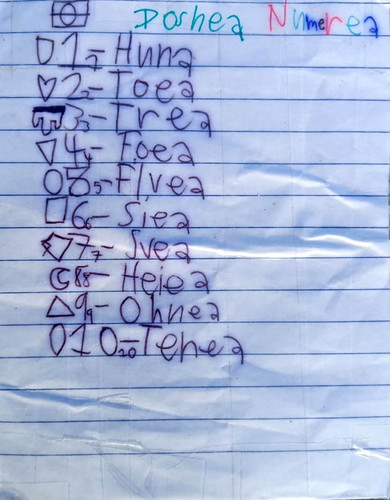 Doshea Numerea
1 1- Huna
2 2- Toea
3 3- Trea
4 4- Foea
5 5- Fivea
6 6- Siea
7 7- Svea
8 8- Heiea
9 9- Ohnea
10 10- Tenea